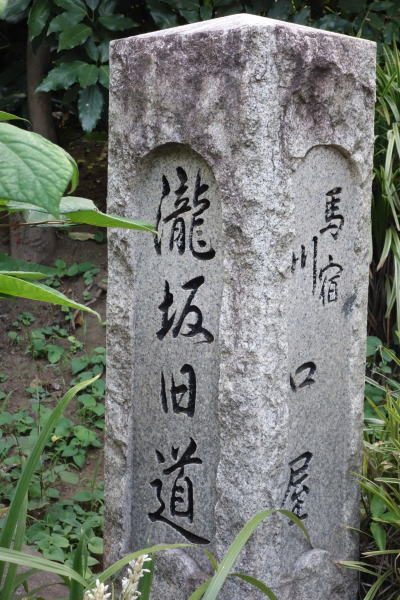 瀧坂旧道
馬宿
川口屋